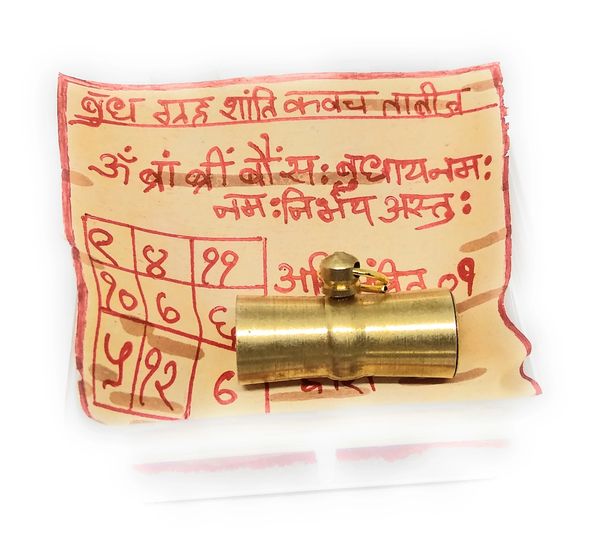 बुध ग्रह शांति कवच ताबीज
ॐ ब्रां ब्रीं बौं सः बुधाय नमः
नमः निर्भय अस्तुः
९ ४ ११
१० ७ ६
५ १२ ७